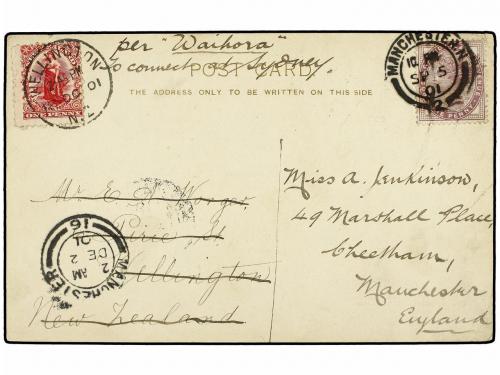 per "Waihora"
to connect at Sydney.
POST CARD
THE ADDRESS ONLY TO BE WRITTEN ON THIS SIDE
WELLINGTON
01
N.Z
ONE PENNY
MANCHESTER
SP 5
01
Mr E. Worger
Pirie St
Wellington
New Zealand
Miss A. Jenkinson,
49 Marshall Place,
Cheetham,
Manchester
England
MANCHESTER
2 AM
DE 2
01
16